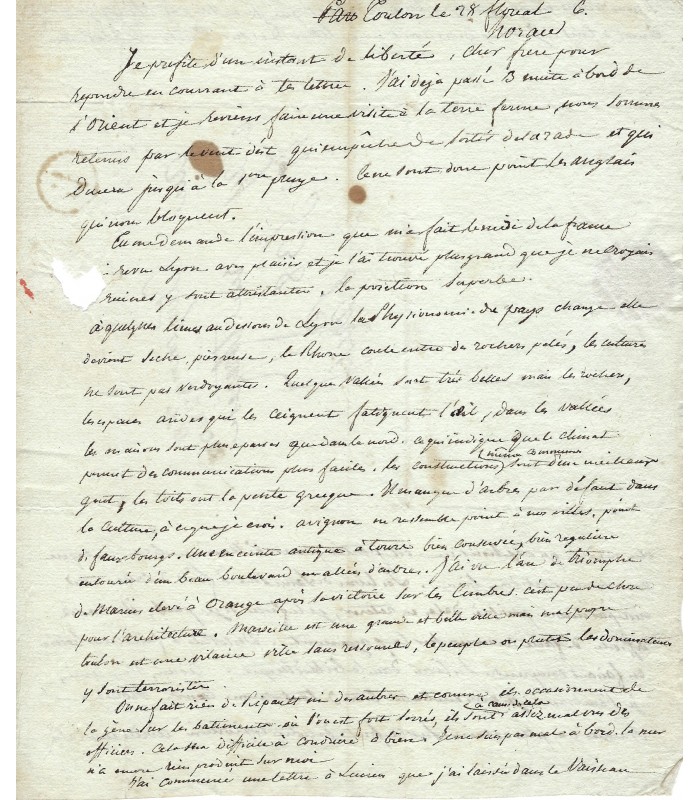 Toulon le 28 floreal 6.
Je profite d'un instant de liberté, cher frere pour
repondre en courrant à ta lettre. J'ai deja passé 3 nuits à bord de
l'Orient et je reviens faire une visite à la terre ferme, nous sommes
retenus par le vent d'est qui empêche de sortir de la rade et qui
Durera jusqu'à la 1ere pluye. Ce ne sont donc point les anglais
qui nous bloquent.
Tu me demande l'impression que m'a fait le midi de la france
revu Lyon avec plaisir et je l'ai trouvé plus grand que je ne croyais
ruines y sont attristantes, la position superbe.
à quelques lieues au dessous de Lyon la Physionomie du pays change elle
devient seche, pierreuse, le Rhone coule entre des rochers pelés, les cultures
ne sont pas verdoyantes. Quelques vallées sont très belles mais les rochers,
les espaces arides qui les ceignent fatiguent l'œil, dans les vallées
les maisons sont plus eparses que dans le nord. ce qui indique que le climat
permet des communications plus faciles. les constructions sont d'un meilleur
gout, les toits ont la pente grecque. Il manque d'arbres par défaut dans
la culture, à ce que je crois. avignon ne ressemble point à nos villes, point
de fauxbourgs. Une enceinte antique à tours bien conservée, bien reguliere
entourée d'un beau boulevard en allées d'arbres. J'ai vu l'arc de triomphe
de Marius elevé à Orange après sa victoire sur les Cimbres. c'est peu de chose
pour l'architecture. Marseille est une grande et belle ville mais mal propre
toulon est une vilaine ville sans ressources, le peuple ou plutot les dominateurs
y sont terroristes
On ne fait rien de Ripault ni des autres et comme ils occasionnent de
la gêne sur les batimens où l'on est fort serrés, ils sont à cause de cela assez mal vus des
officiers. Cela sera difficile à conduire à bien. Je ne suis pas mal à bord. la mer
n'a encore rien produit sur moi
J'ai commencé une lettre à Lucien que j'ai laissée dans le Vaisseau